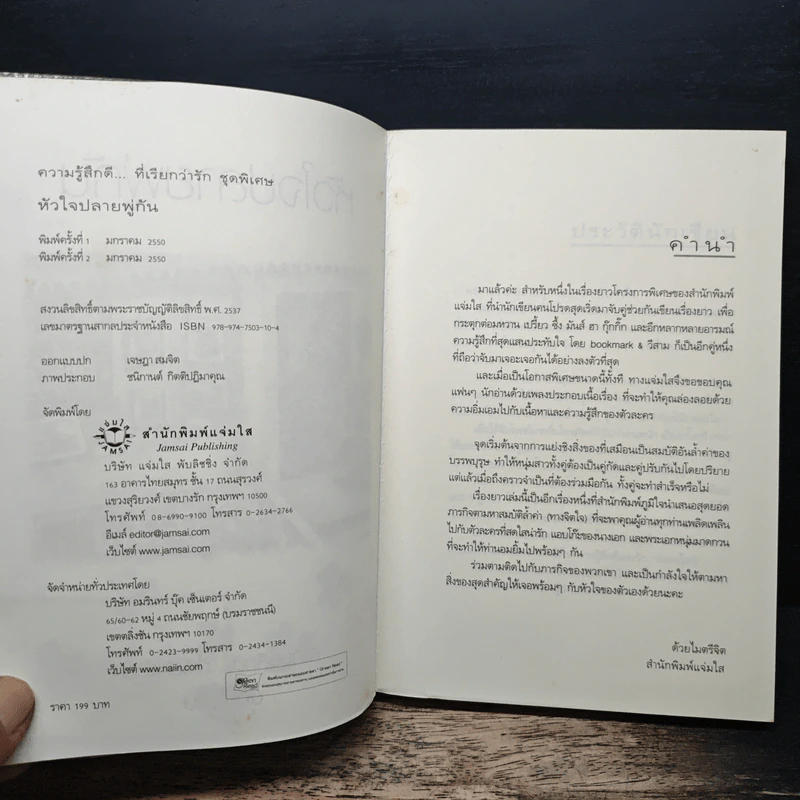 ความรู้สึกดี... ที่เรียกว่ารัก ชุดพิเศษ
หัวใจปลายพู่กัน
พิมพ์ครั้งที่ 1 มกราคม 2550
พิมพ์ครั้งที่ 2 มกราคม 2550
สงวนลิขสิทธิ์ตามพระราชบัญญัติลิขสิทธิ์ พ.ศ. 2537
เลขมาตรฐานสากลประจำหนังสือ ISBN 978-974-7503-10-4
ออกแบบปก เจษฎา สมจิต
ภาพประกอบ ชนิกานต์ กิตติปฎิมาคุณ
จัดพิมพ์โดย
แจ่มใส
JAMSAI
สำนักพิมพ์แจ่มใส
Jamsai Publishing
บริษัท แจ่มใส พับลิชชิ่ง จำกัด
163 อาคารไทยสมุทร ชั้น 17 ถนนสุรวงศ์
แขวงสุริยวงศ์ เขตบางรัก กรุงเทพฯ 10500
โทรศัพท์ 08-6990-9100 โทรสาร 0-2634-2766
อีเมล์ editor@jamsai.com
เว็บไซต์ www.jamsai.com
จัดจำหน่ายทั่วประเทศโดย
บริษัท อมรินทร์ บุ๊ค เซ็นเตอร์ จำกัด
65/60-62 หมู่ 4 ถนนชัยพฤกษ์ (บรมราชชนนี)
เขตตลิ่งชัน กรุงเทพฯ 10170
โทรศัพท์ 0-2423-9999 โทรสาร 0-2434-1384
เว็บไซต์ www.naiin.com
Green Read
ราคา 199 บาท
คำนำ
มาแล้วค่ะ สำหรับหนึ่งในเรื่องยาวโครงการพิเศษของสำนักพิมพ์
แจ่มใส ที่นำนักเขียนคนโปรดสุดเริ่ดมาจับคู่ช่วยกันเขียนเรื่องยาว เพื่อ
กระตุกต่อมหวาน เปรี้ยว ซึ้ง มันส์ ฮา กุ๊กกิ๊ก และอีกหลากหลายอารมณ์
ความรู้สึกที่สุดแสนประทับใจ โดย bookmark & วีสาม ก็เป็นอีกคู่หนึ่ง
ที่ถือว่าจับมาเจอะเจอกันได้อย่างลงตัวที่สุด
และเมื่อเป็นโอกาสพิเศษขนาดนี้ทั้งที ทางแจ่มใสจึงขอขอบคุณ
แฟนๆ นักอ่านด้วยเพลงประกอบเนื้อเรื่อง ที่จะทำให้คุณล่องลอยด้วย
ความอิ่มเอมไปกับเนื้อหาและความรู้สึกของตัวละคร
จุดเริ่มต้นจากการแย่งชิงสิ่งของที่เสมือนเป็นสมบัติอันล้ำค่าของ
บรรพบุรุษ ทำให้หนุ่มสาวทั้งคู่ต้องเป็นคู่กัดและคู่ปรับกันไปโดยปริยาย
แต่แล้วเมื่อถึงคราวจำเป็นที่ต้องร่วมมือกัน ทั้งคู่จะทำสำเร็จหรือไม่
เรื่องยาวเล่มนี้เป็นอีกเรื่องหนึ่งที่สำนักพิมพ์ภูมิใจนำเสนอสุดยอด
ภารกิจตามหาสมบัติล้ำค่า (ทางจิตใจ) ที่จะพาคุณผู้อ่านทุกท่านเพลิดเพลิน
ไปกับตัวละครที่สดใสน่ารัก แอบโก๊ะของนางเอก และพระเอกหนุ่มมาดกวน
ที่จะทำให้ท่านอมยิ้มไปพร้อมๆ กัน
ร่วมตามติดไปกับภารกิจของพวกเขา และเป็นกำลังใจให้ตามหา
สิ่งของสุดสำคัญให้เจอพร้อมๆ กับหัวใจของตัวเองด้วยนะคะ
ด้วยไมตรีจิต
สำนักพิมพ์แจ่มใส